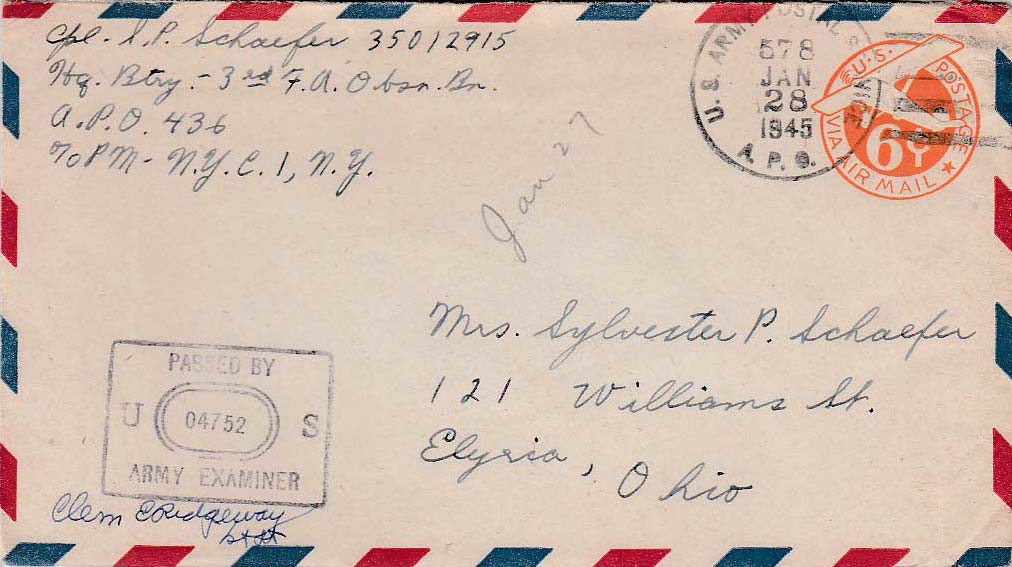 Cpl. S.P. Schaefer 35012915
Hq. Btry. - 3rd F.A. Obsn. Bn.
A.P.O. 436
c/o PM - N.Y.C. 1, N.Y.
U.S. ARMY POSTAL SERVICE
578
JAN
28
1945
A.P.O.
U.S. POSTAGE
6¢
VIA AIR MAIL
Jan 27
Mrs. Sylvester P. Schaefer
121 Williams St.
Elyria, Ohio
PASSED BY
U 04752 S
ARMY EXAMINER
Clem C Ridgeway